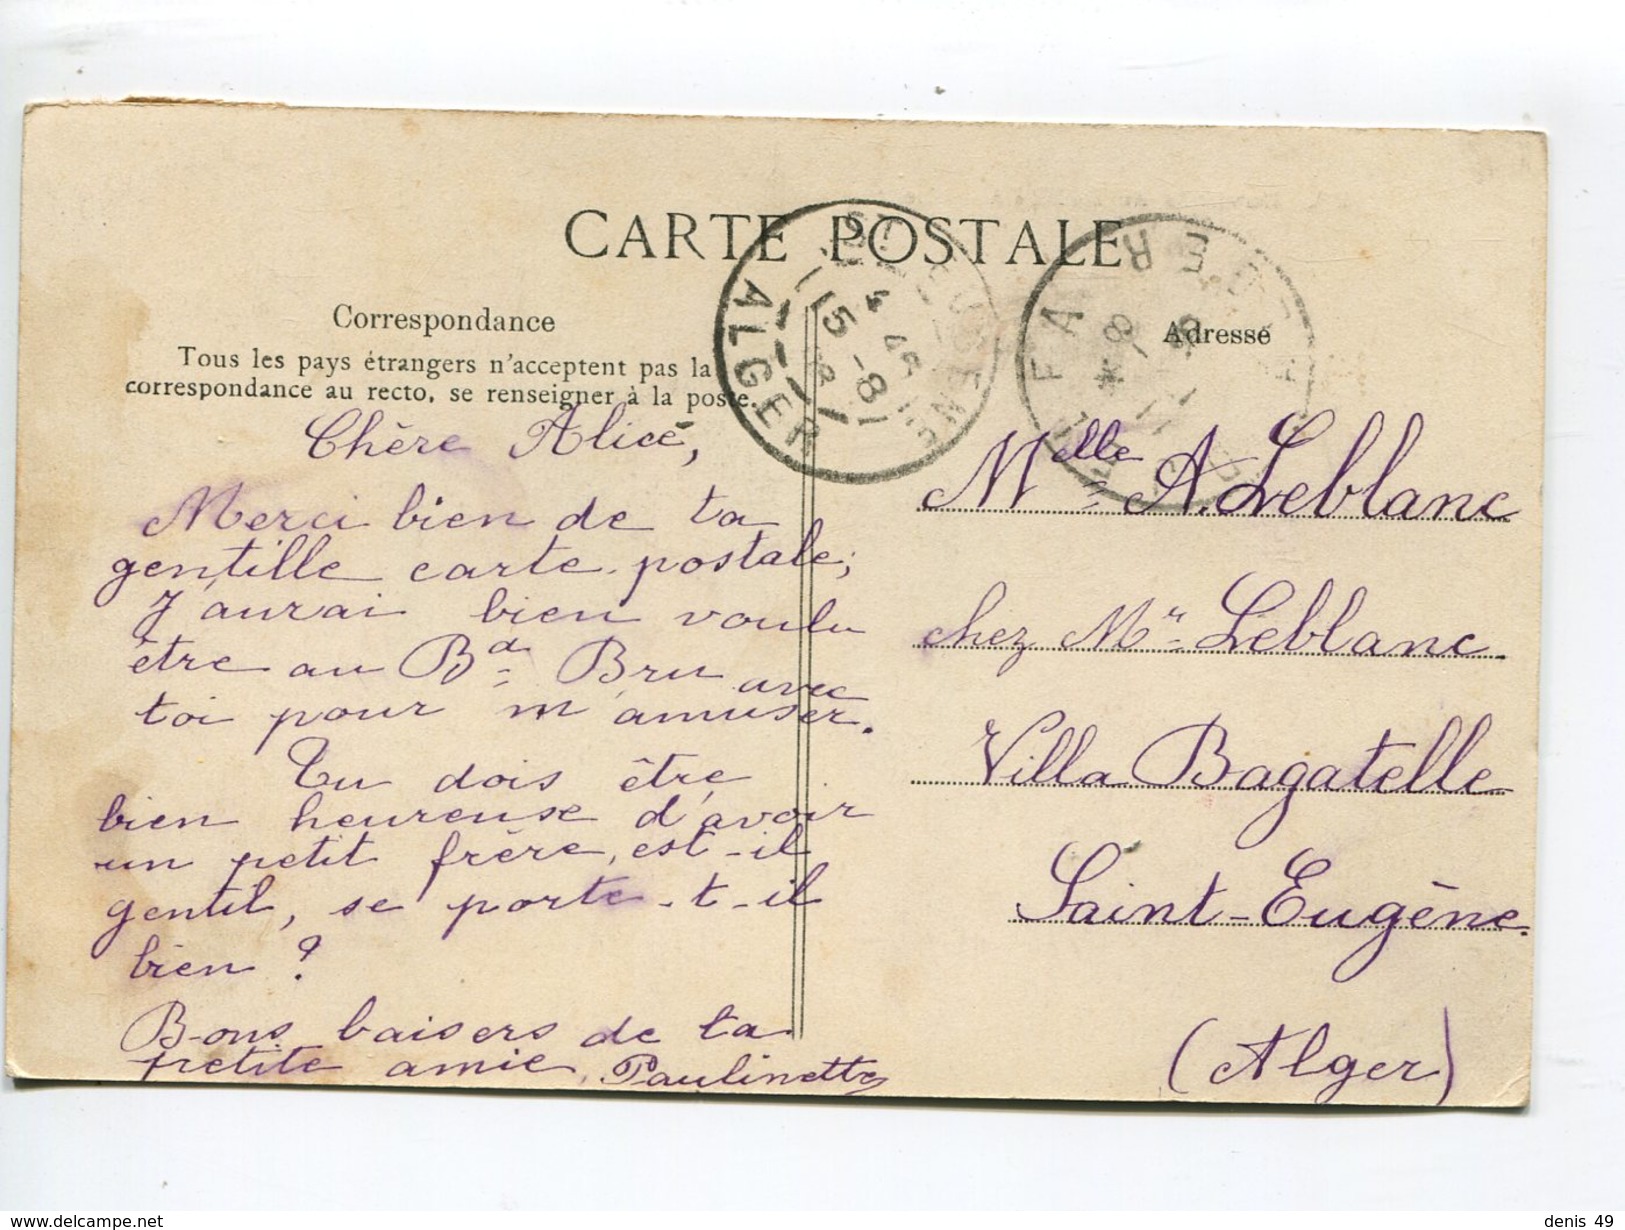 CARTE POSTALE
Correspondance
Tous les pays étrangers n'acceptent pas la
correspondance au recto, se renseigner à la poste.
Chère Alice,
Merci bien de ta
gentille carte postale;
J'aurai bien voulu
être au Bd Bru avec
toi pour m'amuser.
Tu dois être
bien heureuse d'avoir
un petit frère, est-il
gentil, se porte-t-il
bien ?
Bons baisers de ta
petite amie, Paulinette
Adresse
Melle A. Leblanc
chez Mr Leblanc
Villa Bagatelle
Saint-Eugène.
(Alger)
ST EUGENE
4 45
15 -8
ALGER
ALGER
denis 49